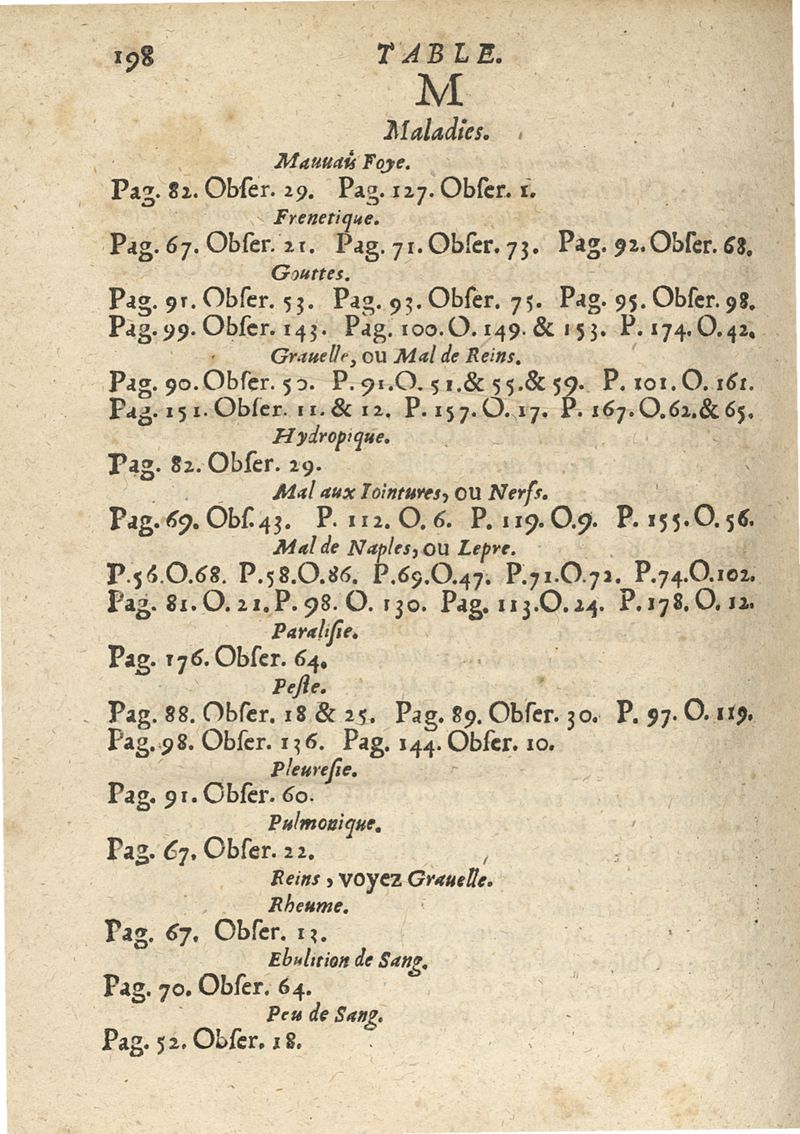 198 TABLE.
M
Maladies.
Mauuais Foye.
Pag. 82. Obſer. 29. Pag. 127. Obſer. 1.
Frenetique.
Pag. 67. Obſer. 21. Pag. 71. Obſer. 73. Pag. 92. Obſer. 68.
Gouttes.
Pag. 91. Obſer. 53. Pag. 93. Obſer. 75. Pag. 95. Obſer. 98.
Pag. 99. Obſer. 143. Pag. 100. O. 149. & 153. P. 174. O. 42.
Grauelle, ou Mal de Reins.
Pag. 90. Obſer. 50. P. 91. O. 51. & 55. & 59. P. 101. O. 161.
Pag. 151. Obſer. 11. & 12. P. 157. O. 17. P. 167. O. 62. & 65.
Hydropique.
Pag. 82. Obſer. 29.
Mal aux Iointures, ou Nerfs.
Pag. 69. Obſ. 43. P. 112. O. 6. P. 119. O. 9. P. 155. O. 56.
Mal de Naples, ou Lepre.
P. 56. O. 68. P. 58. O. 86. P. 69. O. 47. P. 71. O. 72. P. 74. O. 102.
Pag. 81. O. 21. P. 98. O. 130. Pag. 113. O. 24. P. 178. O. 12.
Paraliſie.
Pag. 176. Obſer. 64.
Peſte.
Pag. 88. Obſer. 18 & 25. Pag. 89. Obſer. 30. P. 97. O. 119.
Pag. 98. Obſer. 136. Pag. 144. Obſer. 10.
Pleureſie.
Pag. 91. Obſer. 60.
Pulmonique.
Pag. 67. Obſer. 22.
Reins, voyez Grauelle.
Rheume.
Pag. 67. Obſer. 13.
Ebulition de Sang.
Pag. 70. Obſer. 64.
Peu de Sang.
Pag. 52. Obſer. 18.